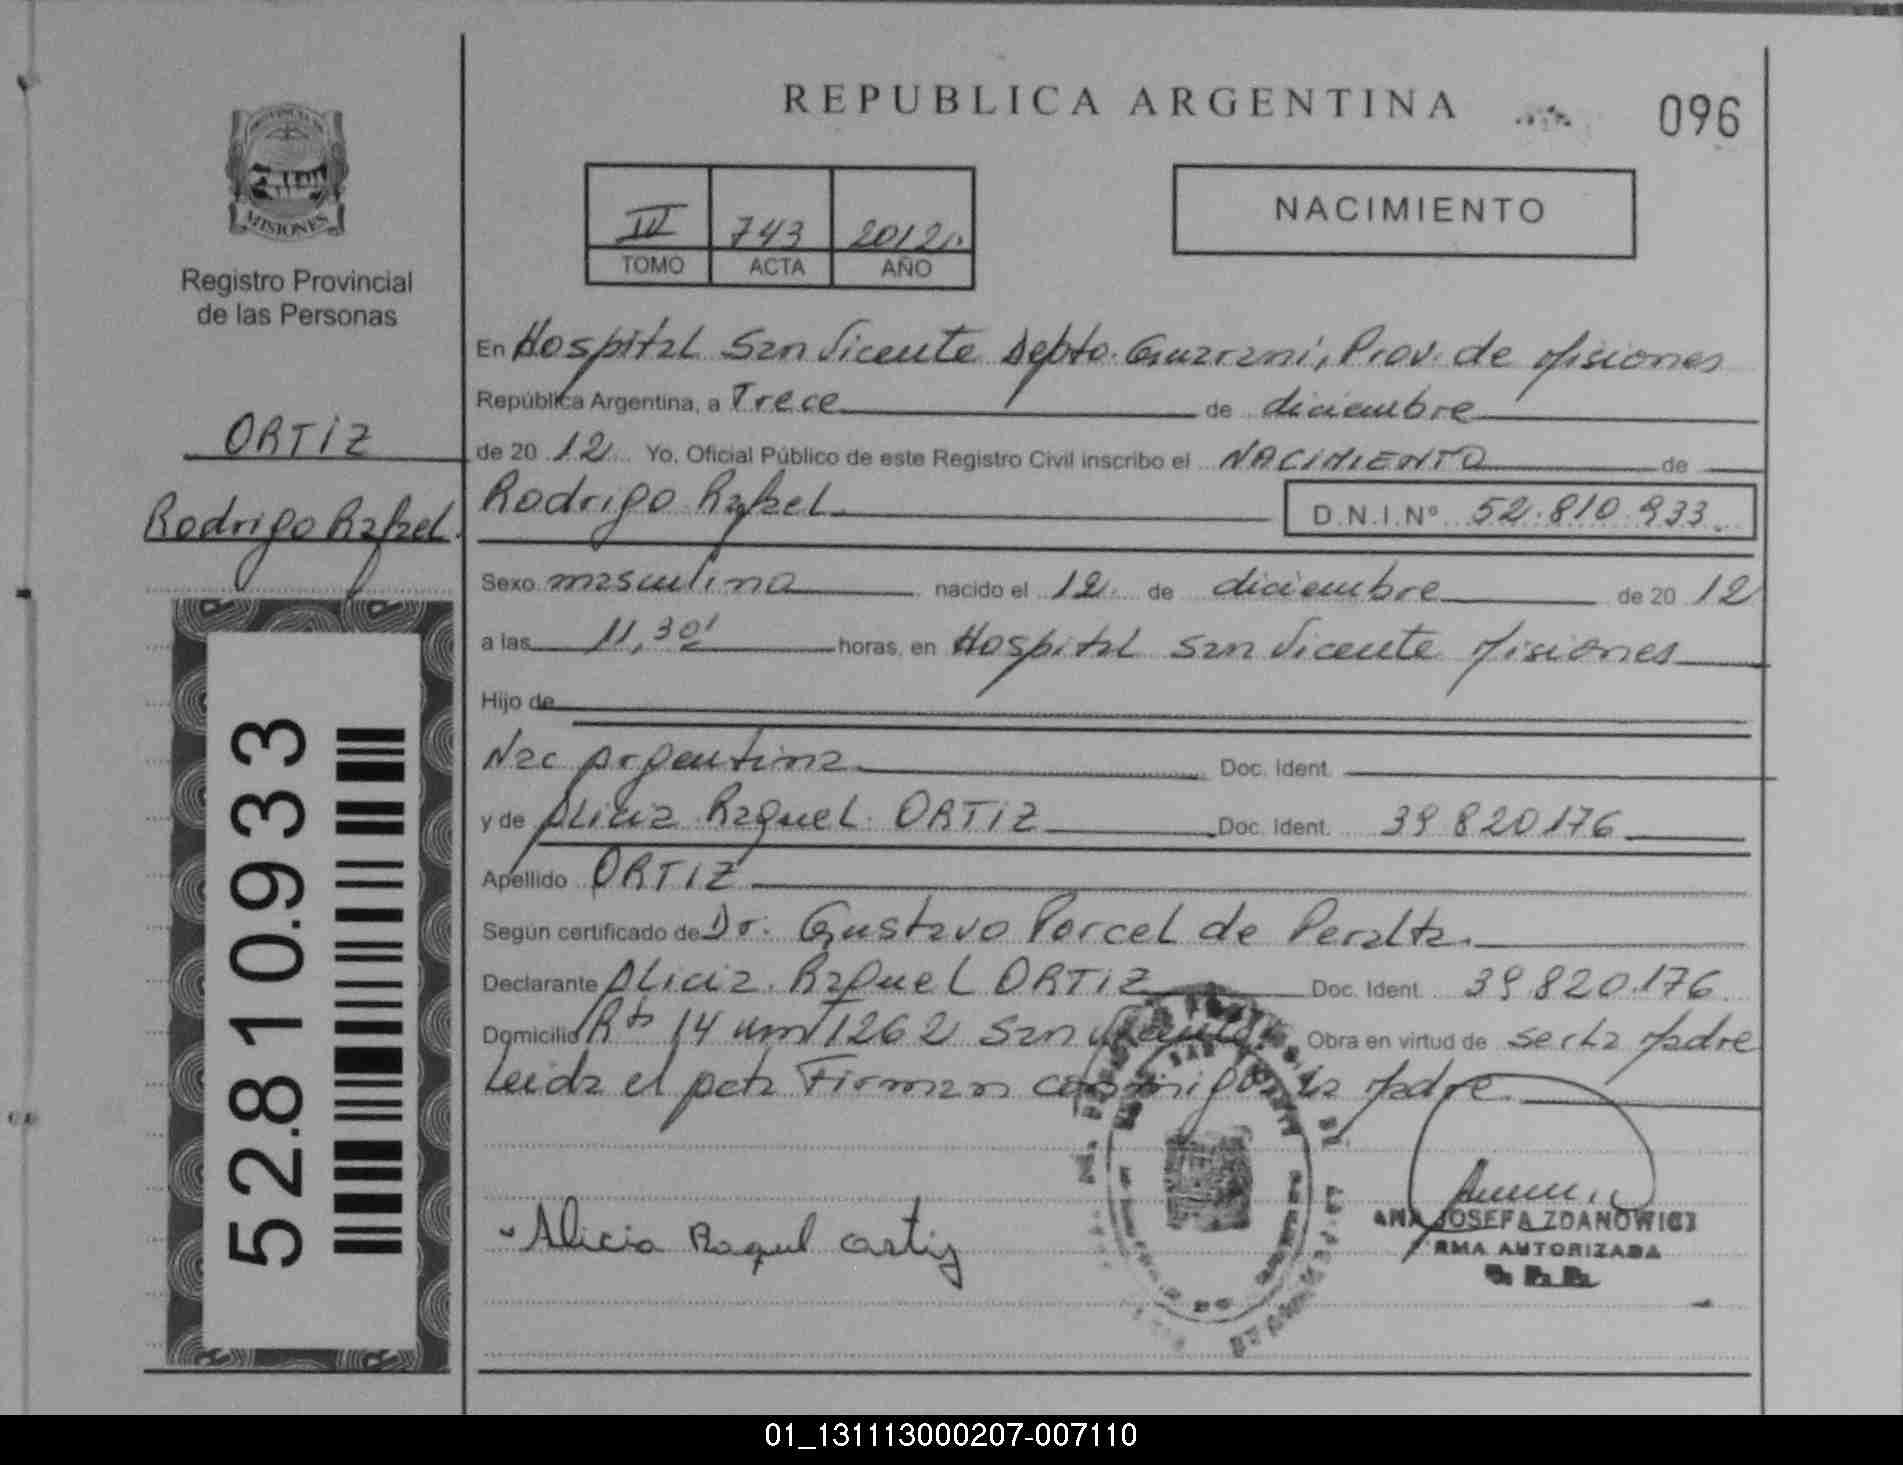 REPUBLICA ARGENTINA
096
MISIONES
Registro Provincial
de las Personas
IV 743 2012
TOMO ACTA AÑO
NACIMIENTO
ORTIZ
Rodrigo Rafael
52.810.933
En Hospital San Vicente Depto. Guarani, Prov. de Misiones
República Argentina, a Trece de diciembre
de 20 12 Yo, Oficial Público de este Registro Civil inscribo el NACIMIENTO de
Rodrigo Rafael D.N.I.Nº 52.810.933
Sexo masculino nacido el 12 de diciembre de 20 12
a las 11,30' horas, en Hospital San Vicente Misiones
Hijo de
Nac Argentina Doc. Ident.
y de Alicia Raquel ORTIZ Doc. Ident. 39 820 176
Apellido ORTIZ
Según certificado de Dr. Gustavo Porcel de Peralta.
Declarante Alicia Raquel ORTIZ Doc. Ident. 39 820.176
Domicilio Rta 14 Km 1262 San Vicente Obra en virtud de ser la Madre
Leida el Acta Firman conmigo la Madre
Alicia Raquel Ortiz
ANA JOSEFA ZDANOWICZ
AUTORIZADA
01_131113000207-007110